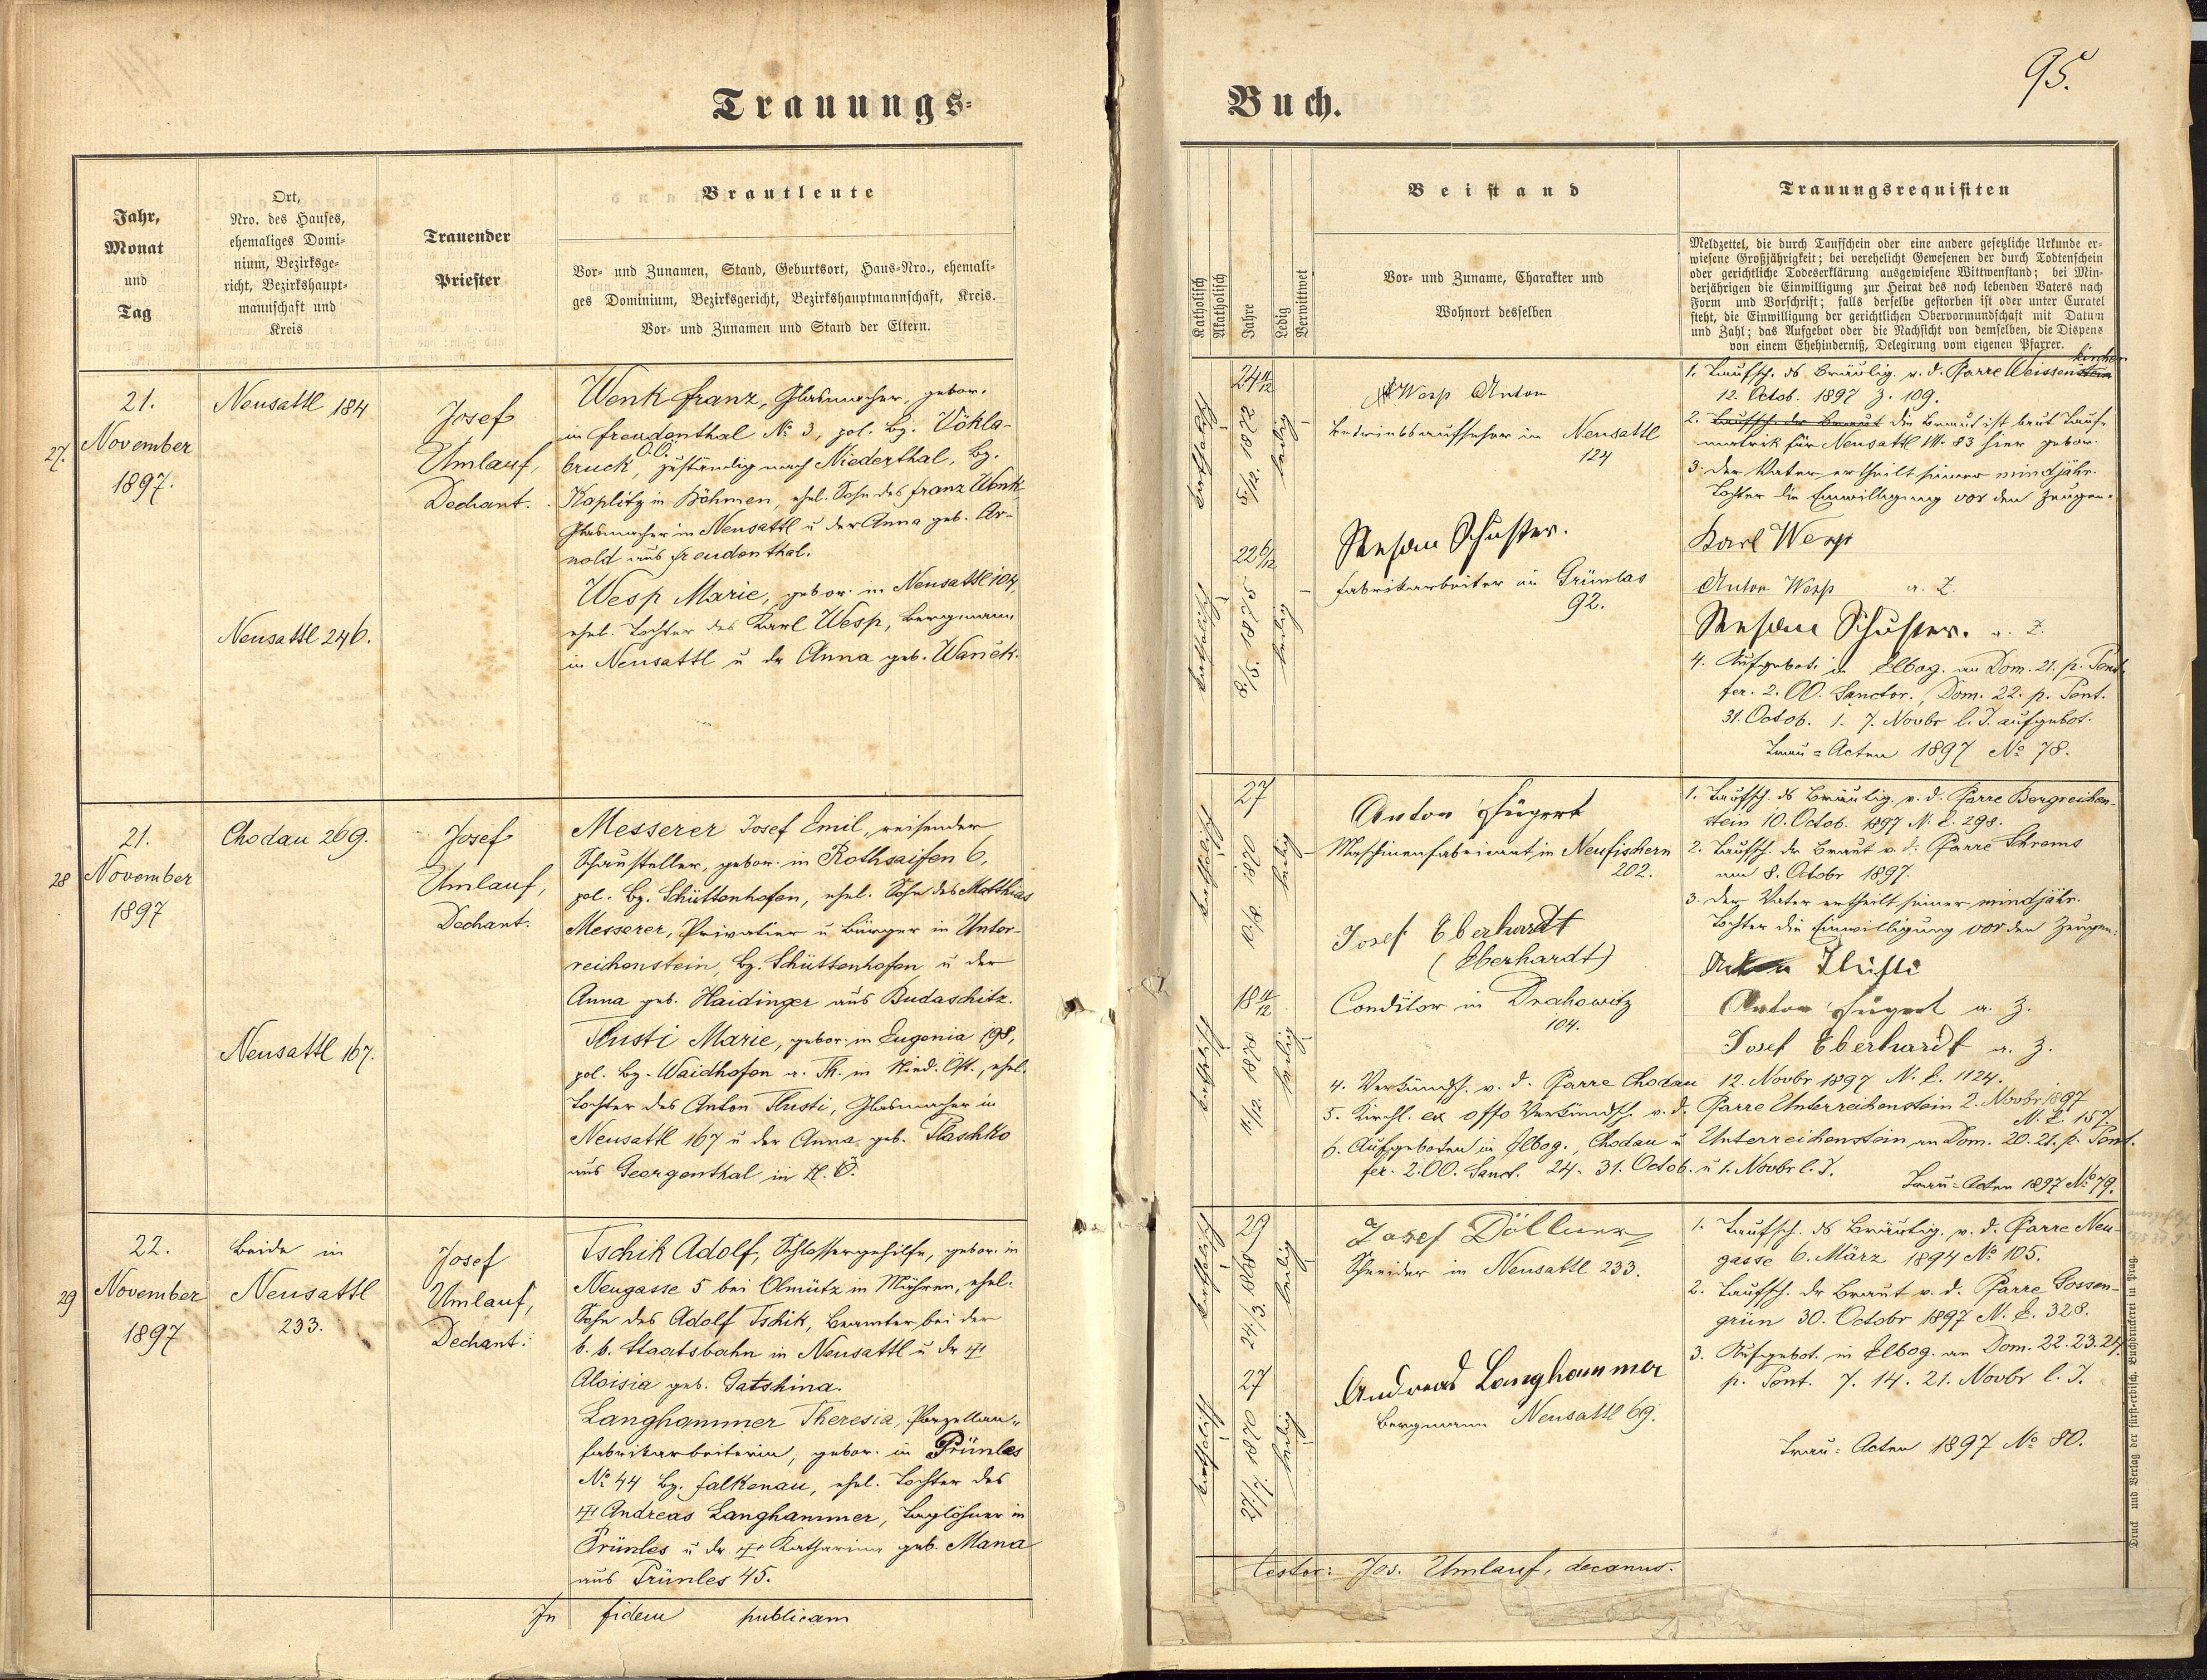 95.
Trauungs-
Buch.
Jahr,
Monat
und
Tag
Ort,
Nro. des Hauses,
ehemaliges Domi-
nium, Bezirksge-
richt, Bezirkshaupt-
mannschaft und
Kreis
Trauender
Priester
Brautleute
Vor- und Zunamen, Stand, Geburtsort, Haus-Nro., ehemali-
ges Dominium, Bezirksgericht, Bezirkshauptmannschaft, Kreis.
Vor- und Zunamen und Stand der Eltern.
Katholisch
Akatholisch
Jahre
Ledig
Verwittwet
Beistand
Vor- und Zuname, Charakter und
Wohnort desselben
Trauungsrequisiten
Meldzettel, die durch Taufschein oder eine andere gesetzliche Urkunde er-
wiesene Großjährigkeit; bei verehelicht Gewesenen der durch Todtenschein
oder gerichtliche Todeserklärung ausgewiesene Wittwenstand; bei Min-
derjährigen die Einwilligung zur Heirat des noch lebenden Vaters nach
Form und Vorschrift; falls derselbe gestorben ist oder unter Curatel
steht, die Einwilligung der gerichtlichen Obervormundschaft mit Datum
und Zahl; das Aufgebot oder die Nachsicht von demselben, die Dispens
von einem Ehehinderniß, Delegirung vom eigenen Pfarrer.
27.
21.
November
1897.
Neusattl 184
Neusattl 246.
Josef
Umlauf,
Dechant.
Wenk Franz, Glasmacher, gebor.
in Freudenthal № 3, pol. Bz. Vökla-
bruck, O.Ö. zuständig nach Niederthal, Bz.
Kaplitz in Böhmen, ehel. Sohn des Franz Wenk
Glasmacher in Neusattl u der Anna geb. Ar-
nold aus Freudenthal.
Wesp Marie, gebor. in Neusattl 104,
ehel. Tochter des Karl Wesp, Bergmann
in Neusattl u dr Anna geb. Wanek.
katholisch
24 11/12
5/12. 1872
ledig
katholisch
22 6/12
8/5. 1875
ledig
Wesp Anton
Betriebsaufseher in Neusattl
124
Schuster.
Fabrikarbeiter in Grünlas
92.
1. Taufsch. ds Bräutig. v. d. Pfarre Weissenkirchen
12. Octob. 1897 Z. 109.
2. Taufsch. der Braut die Braut ist laut Tauf-
matrik für Neusattl 83 hier gebor.
3. Der Vater ertheilt seiner mindjähr.
Tochter die Einwilligung vor den Zeugen.
Karl Wesp
Anton Wesp a. Z.
Schuster. a. Z.
4. Aufgebot. in Elbog. an Dom. 21. p. Pent.
fer. 2. OO. Sanctor., Dom. 22. p. Pent.
31. Octob. 1. 7. Novbr l. J. aufgebot.
Trau-Acten 1897 № 78.
28
21.
November
1897
Chodau 269.
Neusattl 167.
Josef
Umlauf,
Dechant.
Messerer Josef Emil, reisender
Schausteller, gebor. in Rothsaifen 6,
pol. Bz. Schüttenhofen, ehel. Sohn des Matthias
Messerer, Privatier u Bürger in Unter-
reichenstein, Bz. Schüttenhofen u der
Anna geb. Haidinger aus Budaschitz.
Tlusti Marie, gebor. in Eugenia 198,
pol. Bz. Waidhofen a. Th. in Nied. Öst., ehel.
Tochter des Anton Tlusti, Glasmacher in
Neusattl 167 u der Anna geb. Plaschko
aus Georgenthal in N. Ö.
katholisch
27
10/8. 1870
ledig
katholisch
18 11/12
11/12. 1878
ledig
Anton Fügert
Maschinenfabrikant in Neufischern
202.
Josef Eberhardt
(Eberhardt)
Conditor in Drahowitz
104.
1. Taufsch. ds Bräutig. v. d. Pfarre Bergreichen-
stein 10. Octob. 1897 N. E. 298.
2. Taufsch. dr Braut v. d. Pfarre Schrems
am 8. Octobr 1897.
3. der Vater ertheilt seiner mindjähr.
Tochter die Einwilligung vor den Zeugen:
Tlusti
Anton Fügert a. Z.
Josef Eberhardt a. Z.
4. Verkündsch. v. d. Pfarre Chodau 12. Novbr 1897 N. E. 1124.
5. Kirchl. ex offo Verkündsch. v. d. Pfarre Unterreichenstein 2. Novbr 1897
N. E. 157
6. Aufgeboten in Elbog., Chodau u Unterreichenstein an Dom. 20. 21. p. Pent.
fer. 2. OO. Sanct. 24. 31. Octob. u 1. Novbr l. J.
Trau-Acten 1897 № 79.
29
22.
November
1897
Beide in
Neusattl
233.
Josef
Umlauf,
Dechant.
Tschik Adolf, Schlossergehilfe, gebor. in
Neugasse 5 bei Olmütz in Mähren, ehel.
Sohn des Adolf Tschik, Beamter bei der
k. k. Staatsbahn in Neusattl u dr †
Aloisia geb. Gatschina.
Langhammer Theresia, Porzellan-
fabrikarbeiterin, gebor. in Prünles
№ 44 Bz. Falkenau, ehel. Tochter des
† Andreas Langhammer, Taglöhner in
Prünles u dr † Katharina geb. Mana
aus Prünles 45.
katholisch
29
24/3. 1868
ledig
katholisch
27
27/7. 1870
ledig
Josef Döllner
Schneider in Neusattl 233.
Andreas Langhammer
Bergmann Neusattl 69.
1. Taufsch. ds Bräutig. v. d. Pfarre Neu-
gasse 6. März 1894 № 105.
2. Taufsch. dr Braut v. d. Pfarre Gossen-
grün 30. Octobr 1897 N. E. 328.
3. Aufgebot. in Elbog. an Dom. 22. 23. 24.
p. Pent. 7. 14. 21. Novbr l. J.
Trau-Acten 1897 № 80.
In fidem publicam
testor: Jos. Umlauf, decanus.
Druck und Verlag der fürst-erzbisch. Buchdruckerei in Prag.